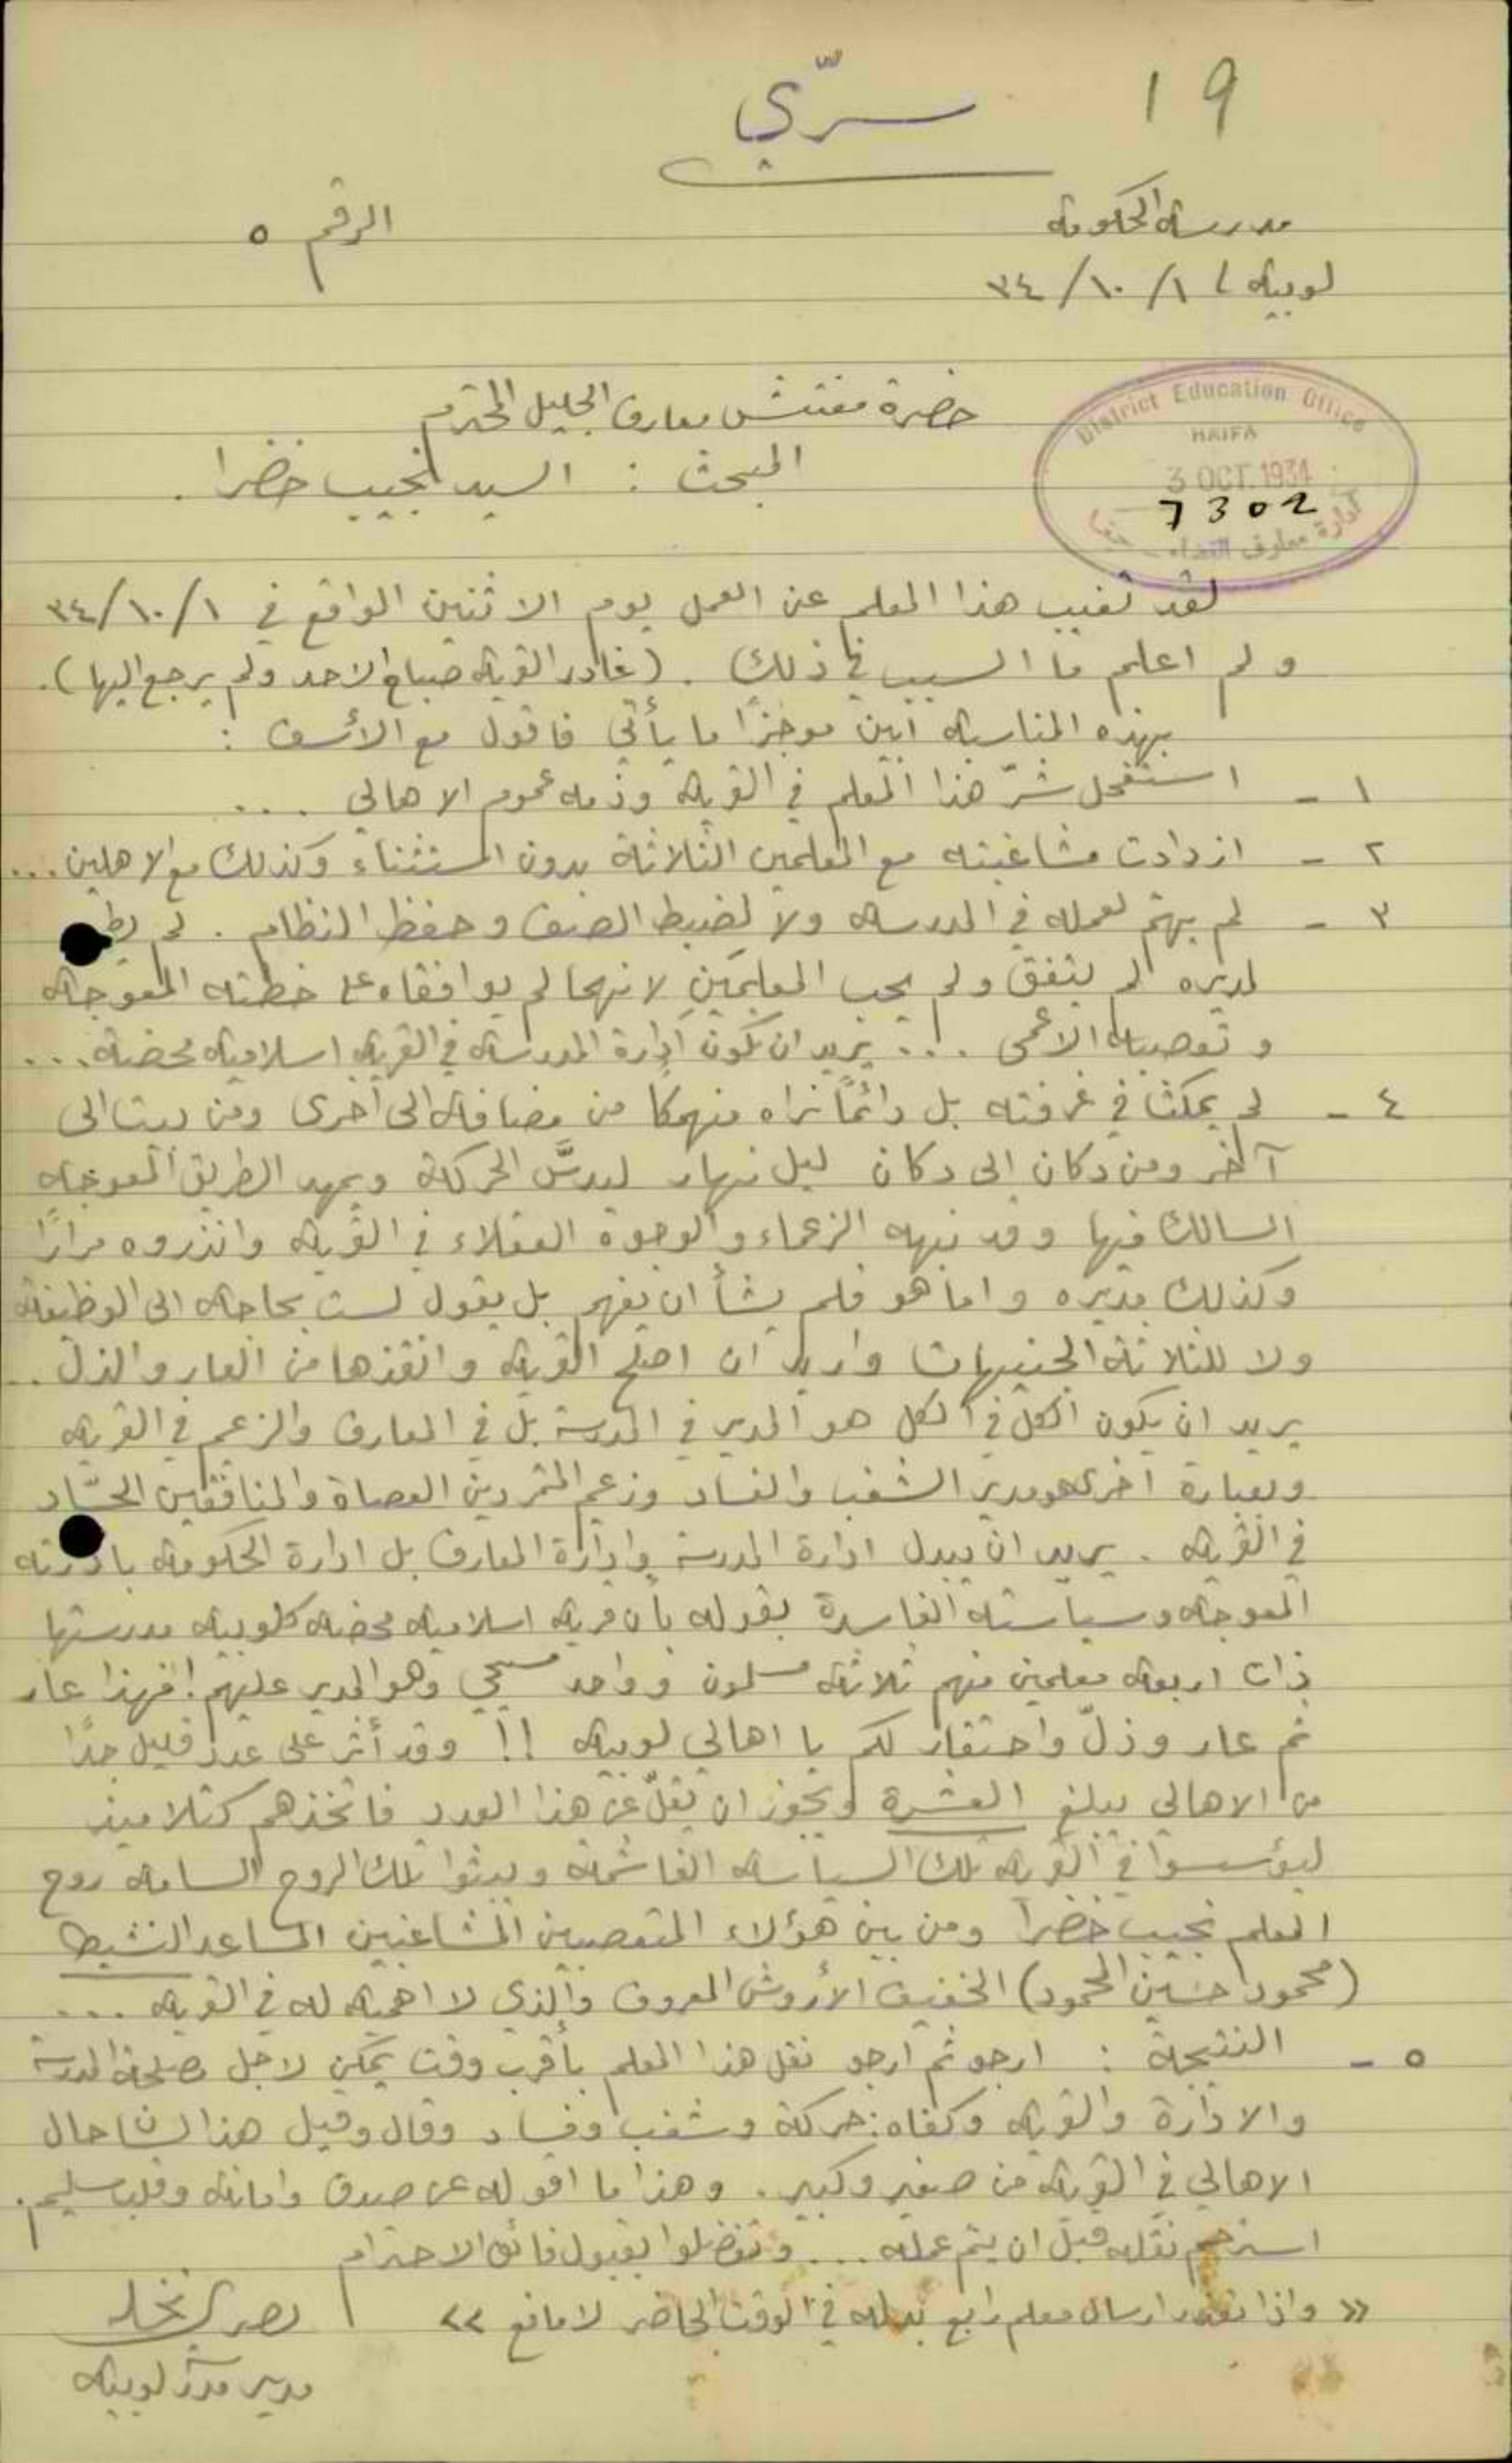 ١٩
سرّي
مدرسة الحكومة
الرقم ٥
لوبية / ١ /١٠ /٣٤
District Education Office
HAIFA
3 OCT. 1934
7302
ادارة معارف اللواء - حيفا
حضرة مفتش معارف الجليل المحترم
المبحث : السيد نجيب خضرا .
لقد تغيب هذا المعلم عن العمل يوم الاثنين الواقع في ١ /١٠ /٣٤
ولم اعلم ما السبب في ذلك . (غادر القرية صباح الاحد ولم يرجع اليها) .
بهذه المناسبة ابين موجزًا ما يأتي فاقول مع الأسف :
١ - استفحل شرّ هذا المعلم في القرية وذمه عموم الاهالي ....
٢ - ازدادت مشاغبته مع المعلمين الثلاثة بدون استثناء وكذلك مع الاهلين ...
٣ - لم يهتم لعمله في المدرسة ولا لضبط الصف و حفظ النظام . لم
لمديره لم يتفق ولم يحب المعلمَين لانهما لم يوافقاه على خطته المعوجة
و تعصبه الاعمى .... يريد ان تكون ادارة المدرسة في القرية اسلامية محضة ....
٤ - لم يمكث في غرفته بل دائمًا نراه منهمكًا من مضافة الى أخرى ومن بيت الى
آخر ومن دكان الى دكان ليل نهار ليدسَّ الحركة ويمهد الطريق المعوجة
السالك فيها وقد نبهه الزعماء والوجوه العقلاء في القرية وانذروه مرارًا
وكذلك مديره واما هو فلم يشأ ان يفهم بل يقول لست بحاجة الى الوظيفة
ولا للثلاثة الجنيهات واريد ان اصلح القرية وانقذها من العار والذل ..
يريد ان يكون الكل في الكل هو المدير في المدرسة بل في المعارف والزعيم في القرية
وبعبارة اخرى هو مدير الشغب والفساد وزعيم المتمردين العصاة والمنافقين الحسّاد
في القرية . يريد ان يبدل ادارة المدرسة وادارة المعارف بل ادارة الحكومة بادارته
المعوجة وسياسته الفاسدة بقوله بأن قرية اسلامية محضة كلوبية مدرستها
ذات اربعة معلمين منهم ثلاثة مسلمون وواحد مسيحي وهو المدير عليهم ! فهذا عار
ثم عار وذلّ واحتقار لكم يا اهالي لوبية !! وقد أثر على عدد قليل جدًا
من الاهالي يبلغ العشرة ويجوز ان يقلّ عن هذا العدد فاتخذهم كتلاميذ
ليؤسسوا في القرية تلك السياسة الغاشمة ويبثوا تلك الروح السامة روح
المعلم نجيب خضرا ومن بين هؤلاء المتعصبين المشاغبين المساعد النشيط
(محمود حسين المحمود) الخفيف الأروش المعروف والذي لا اهمية له في القرية ....
٥ - النتيجة : ارجو ثم ارجو نقل هذا المعلم بأقرب وقت يمكن لاجل مصلحة المدرسة
والادارة والقرية وكفاه : حركة وشغب وفساد وقال وقيل هذا لسان حال
الاهالي في القرية من صغير وكبير . وهذا ما اقوله عن صدق وامانة وقلب سليم .
استرحم نقله قبل ان يتم عمله ... وتفضلوا بقبول فائق الاحترام
« واذا تعذر ارسال معلم رابع بدله في الوقت الحاضر لا مانع »
مدير مدرسة لوبية